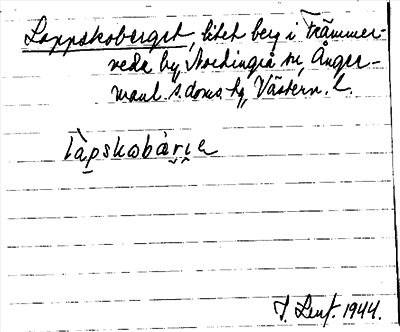 Lappskoberget, litet berg i Främmer-
veda by, Nordingrå sn, Ånger-
manl. s. doms. hg, Västern. l.
làpskobàrịe
J. Lent. 1944.